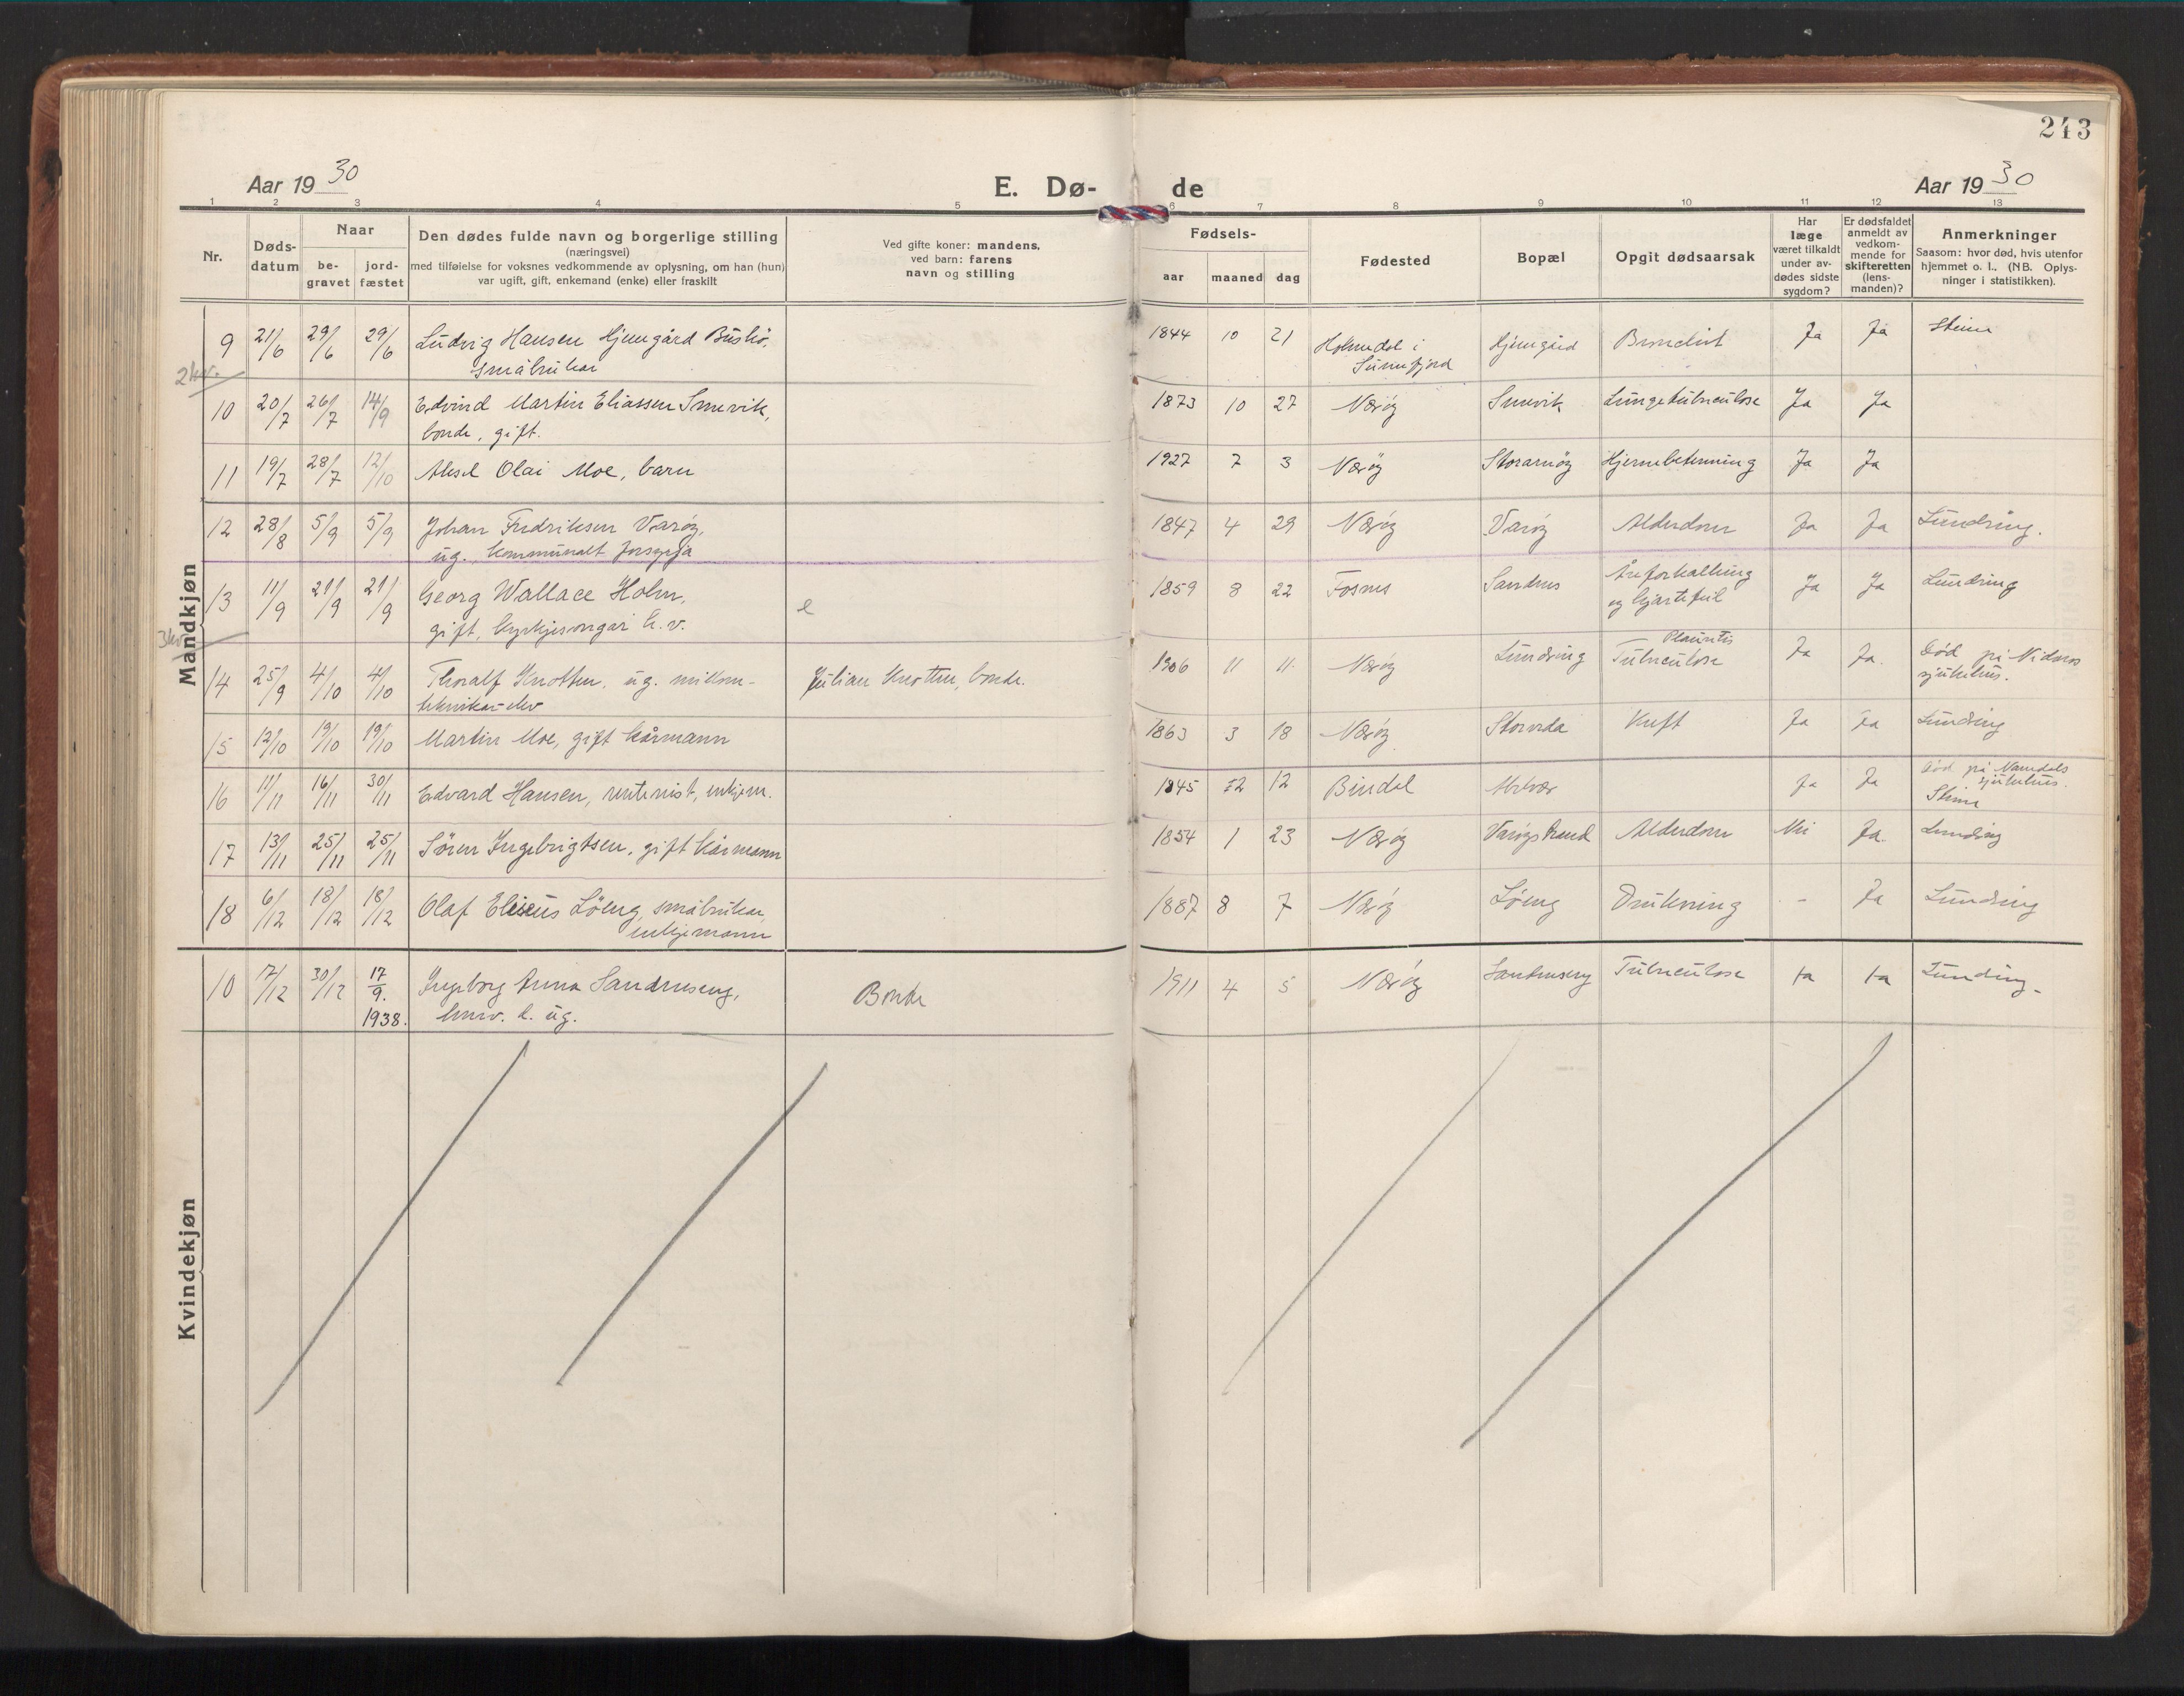 243
Aar 1930
E. Dø-
de
Aar 1930
1 2 3 4 5 6 7 8 9 10 11 12 13
Nr.
Døds-
datum
Naar
be-
gravet
jord-
fæstet
Den dødes fulde navn og borgerlige stilling
(næringsvei)
med tilføielse for voksnes vedkommende av oplysning, om han (hun)
var ugift, gift, enkemand (enke) eller fraskilt
Ved gifte koner: mandens,
ved barn: farens
navn og stilling
Fødsels-
aar maaned dag
Fødested
Bopæl
Opgit dødsaarsak
Har
læge
været tilkaldt
under av-
dødes sidste
sygdom?
Er dødsfaldet
anmeldt av
vedkom-
mende for
skifteretten
(lens-
manden)?
Anmerkninger
Saasom: hvor død, hvis utenfor
hjemmet o. l.. (NB. Oplys-
ninger i statistikken).
Mandkjøn
9 21/6 29/6 29/6 Ludvig Hansen Hjemgård
småbrukar
1844 10 21 Holmedal i
Sunnfjord
Hjemgård Ja Ja Steine
2 kv.
10 20/7 26/7 14/9 Edvind Martin Eliassen Smevik,
bonde, gift.
1873 10 27 Nærøy Smevik Lungetuberculose Ja Ja
11 19/7 28/7 12/10 Aksel Olai Moe, barn
1927 7 3 Nærøy Storarnøy Hjernebetenning Ja Ja
12 28/8 5/9 5/9 Johan Fredriksen Varøy,
ug., kommunalt forsyrja
1847 4 29 Nærøy Varøy Alderdom Ja Ja Lundring.
13 11/9 21/9 21/9 Georg Wallace Holm,
gift, kyrkjesongar e. v.
e
1859 8 22 Fosnes Sandnes Åreforkalking
og hjartefeil
Ja Ja Lundring
3 kv.
14 25/9 4/10 4/10 Thoralf Knotten, ug.
teknikar-elev
Julian Knotten, bonde.
1906 11 11 Nærøy Lundring
Tuberculose
Ja Ja. Død på Nidaros
sjukehus.
15 12/10 19/10 19/10 Martin Moe, gift kårmann
1863 3 18 Nærøy Kreft Ja Ja Lundring
16 11/11 16/11 30/11 Edvard Hansen, rentenist, enkjem.
1845 12 12 Bindal Abelvær Ja Ja Død på Namdals
sjukehus.
Steine
17 13/11 25/11 25/11 Søren Ingebrigtsen, gift kårmann
1854 1 23 Nærøy Varøystrand Alderdom Nei Ja. Lundring
18 6/12 18/12 18/12 Olaf Eliseus Löeng, småbrukar,
enkjemann
1887 8 7 Nærøy Löeng Drukning - Ja Lundring
Kvindekjøn
10 17/12 30/12 17/9. Ingeborg Anna Sandneseng,
1938. d. ug.
Bonde
1911 4 5 Nærøy Sandneseng Tuberculose Ja Ja Lundring.